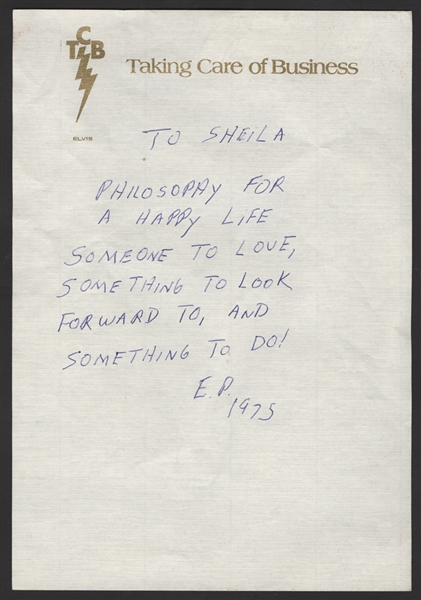 TCB
Taking Care of Business
ELVIS
TO SHEILA
PHILOSOPHY FOR
A HAPPY LIFE
SOMEONE TO LOVE,
SOMETHING TO LOOK
FORWARD TO, AND
SOMETHING TO DO!
E.P.
1975